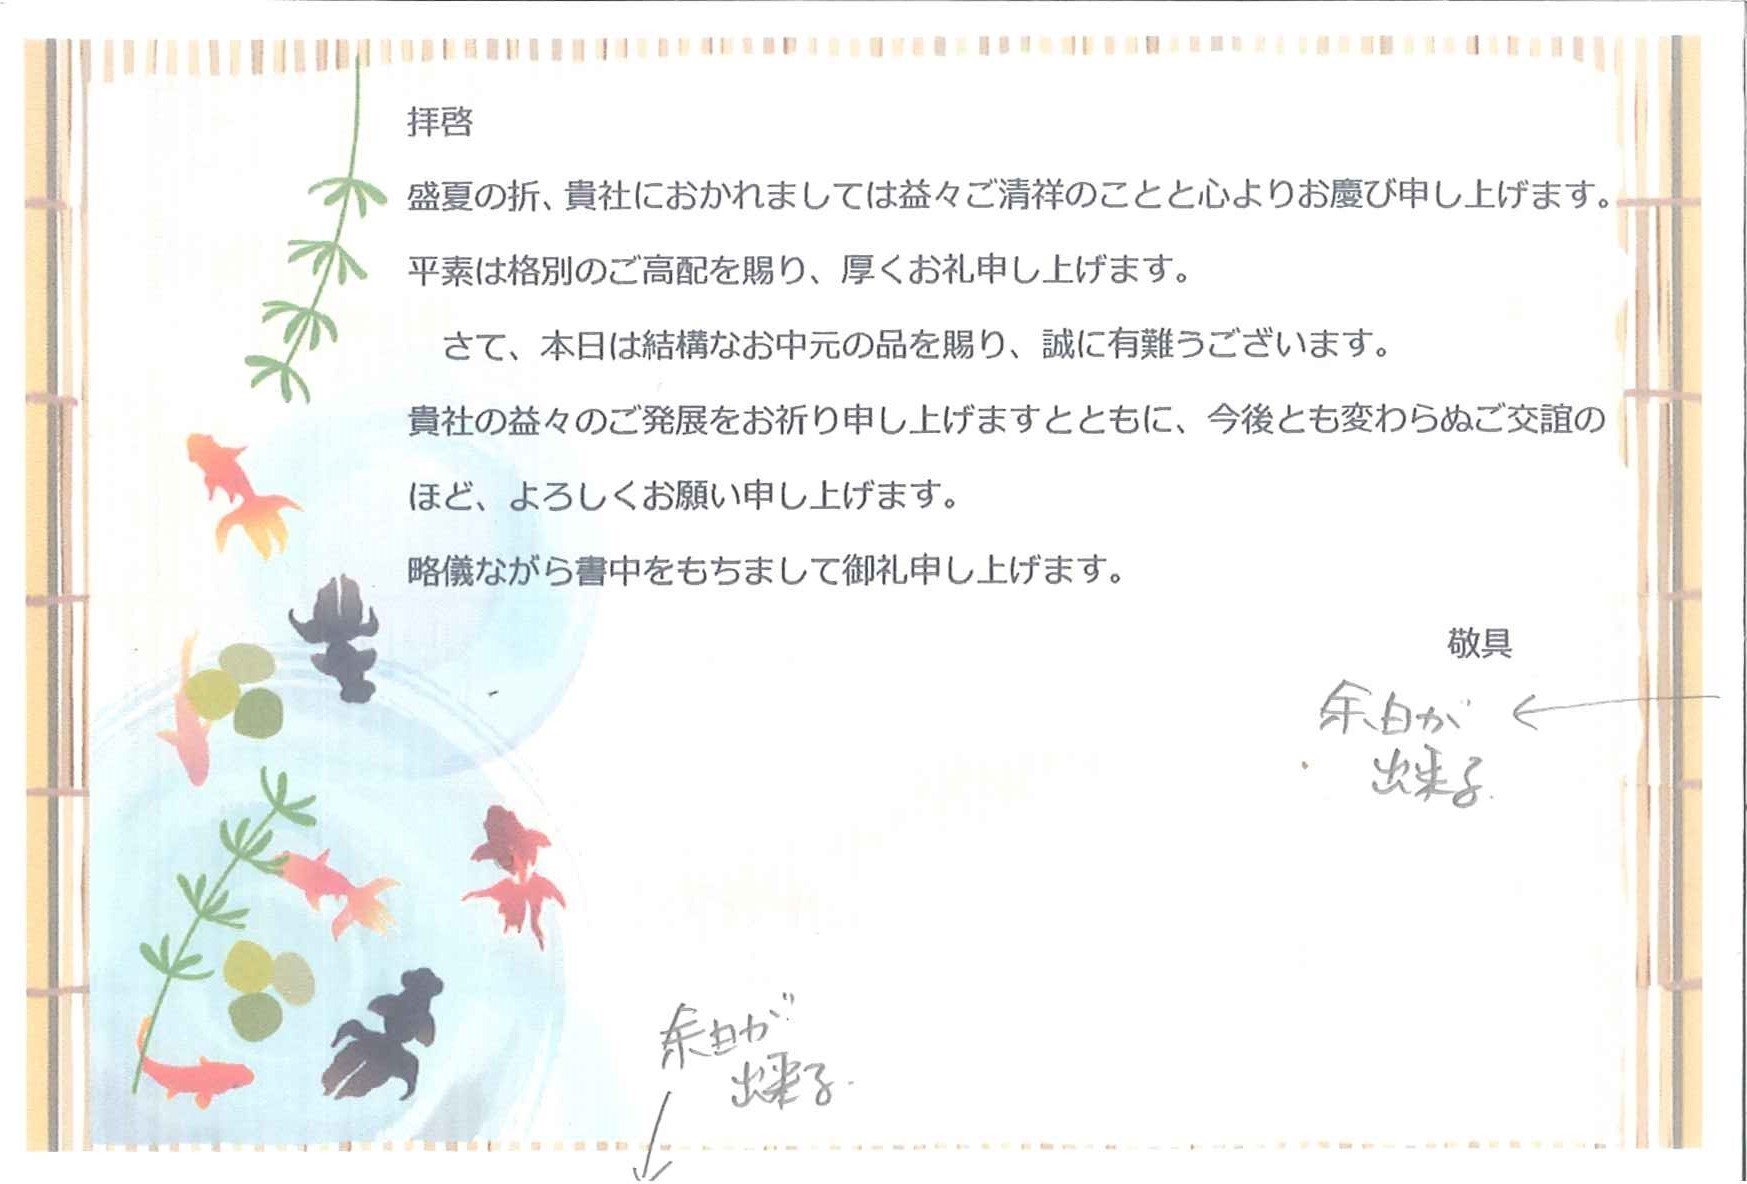 拝啓
盛夏の折、貴社におかれましては益々ご清祥のことと心よりお慶び申し上げます。
平素は格別のご高配を賜り、厚くお礼申し上げます。
　さて、本日は結構なお中元の品を賜り、誠に有難うございます。
貴社の益々のご発展をお祈り申し上げますとともに、今後とも変わらぬご交誼の
ほど、よろしくお願い申し上げます。
略儀ながら書中をもちまして御礼申し上げます。
敬具
余白が
出来る
余白が
出来る